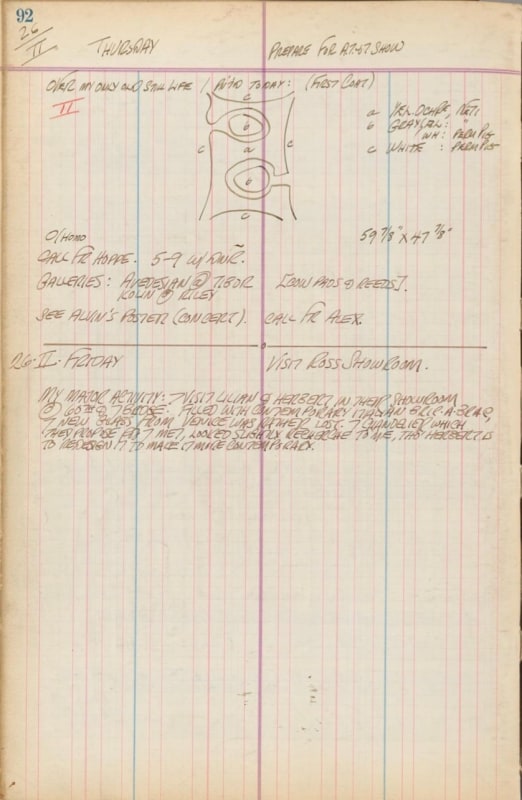 92
26
II
THURSDAY PREPARE FOR A.T.+T SHOW
OVER MY ONLY OLD STILL LIFE / TODAY: (FIRST COAT)
II
c
b
c a c
b
c
a YEL. OCHRE,
b GRAY " "
WH: PERM PIG
c WHITE : PERM PIG
O/HOMO 59 7/8" X 47 7/8"
CALL FR HOPPE. 5-9 W/
GALLERIES: AVEDESIAN @ TIBOR
KOLIN @ RILEY
SEE ALVIN'S POSTER (CONCERT). CALL FR ALEX.
26·II· FRIDAY VISIT ROSS SHOWROOM.
MY MAJOR ACTIVITY: VISIT LILIAN & HERBERT IN THEIR SHOWROOM
@ 60TH & FILLED WITH CONTEMPORARY ITALIAN BRIC-A-BRAC,
NEW GLASS FROM VENICE WAS RATHER LOST. CHANDELIER WHICH
THEY PROPOSE FOR MET, LOOKED SLIGHTLY RECHERCHE TO ME, THO HERBERT IS
TO REDESIGN IT TO MAKE IT MORE CONTEMPORARY.